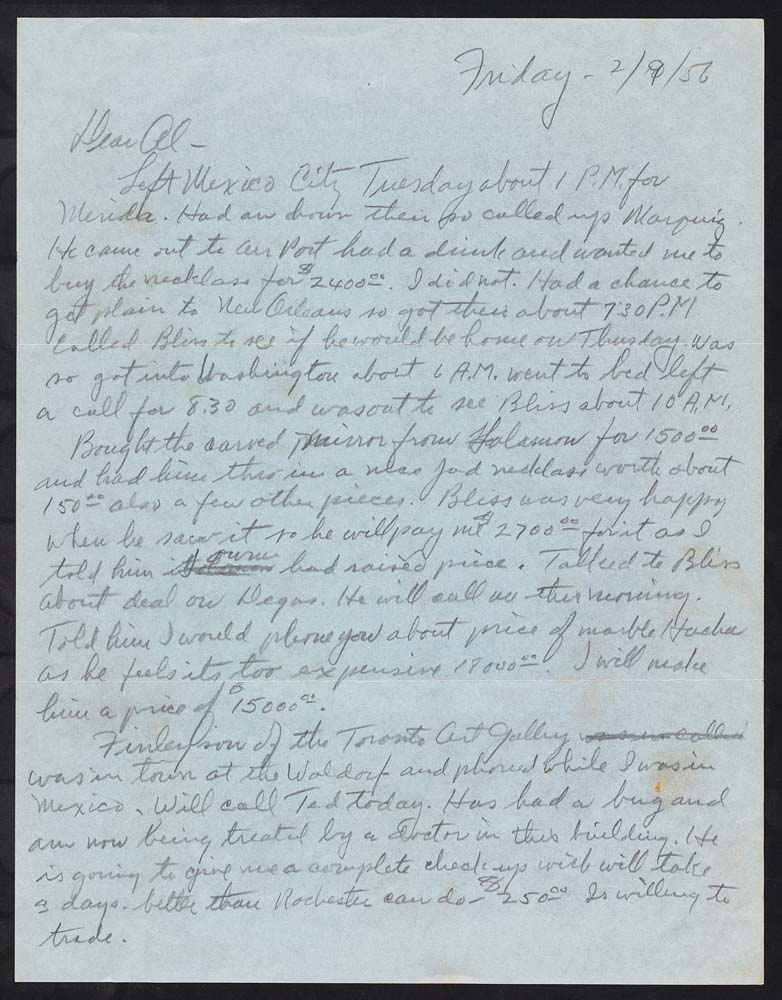 Friday - 2/9/56
Dear Al -
Left Mexico City Tuesday about 1 P.M. for
Merida. Had an hour their so called up Marquis.
He came out to air Port had a drink and wanted me to
buy the necklass for $2400.00. I did not. Had a chance to
get plain to New Orleans so got their about 7:30 P.M.
Called Bliss to see if he would be home on Thursday. Was
so got into Washington about 6 A.M. went to bed left
a call for 8.30 and was out to see Bliss about 10 A.M.
Bought the carved mirror from Salamon for 1500.00
and had him thro in a nice Jad necklass worth about
150.00 also a few other pieces. Bliss was very happy
when he saw it so he will pay me $2700.00 for it as I
told him it owner had raised price. Talked to Bliss
about deal on Degas. He will call me this morning.
Told him I would phone you about price of marble Hacha
as he feels its too expensive 18000.00. I will make
him a price of $15000.00.
Finlayson of the Toronto Art Gallery
was in town at the Waldorf and phoned while I was in
Mexico. Will call Ted today. Has had a bug and
am now being treated by a doctor in this building. He
is going to give me a complete check up wich will take
3 days. better than Rochester can do - $250.00 Is willing to
trade.